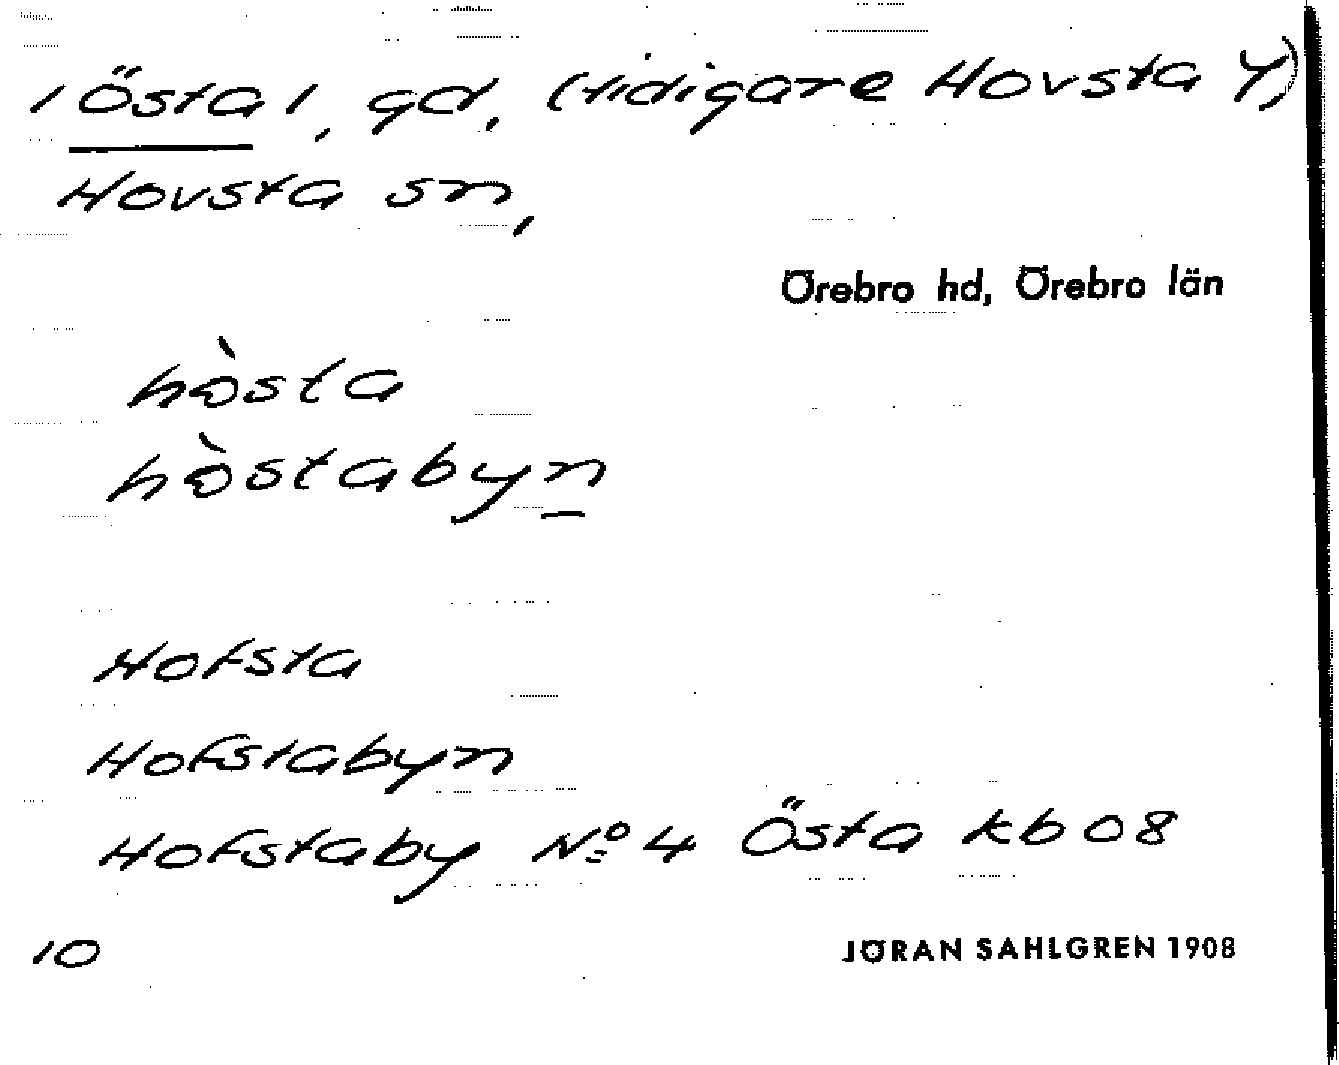 /Östa/, gd, (tidigare Hovsta 4)
Hovsta sn,
Örebro hd, Örebro län
hòsta
hòstabyn
Hofsta
Hofstabyn
Hofstaby No 4 Östa kb 08
10
JÖRAN SAHLGREN 1908